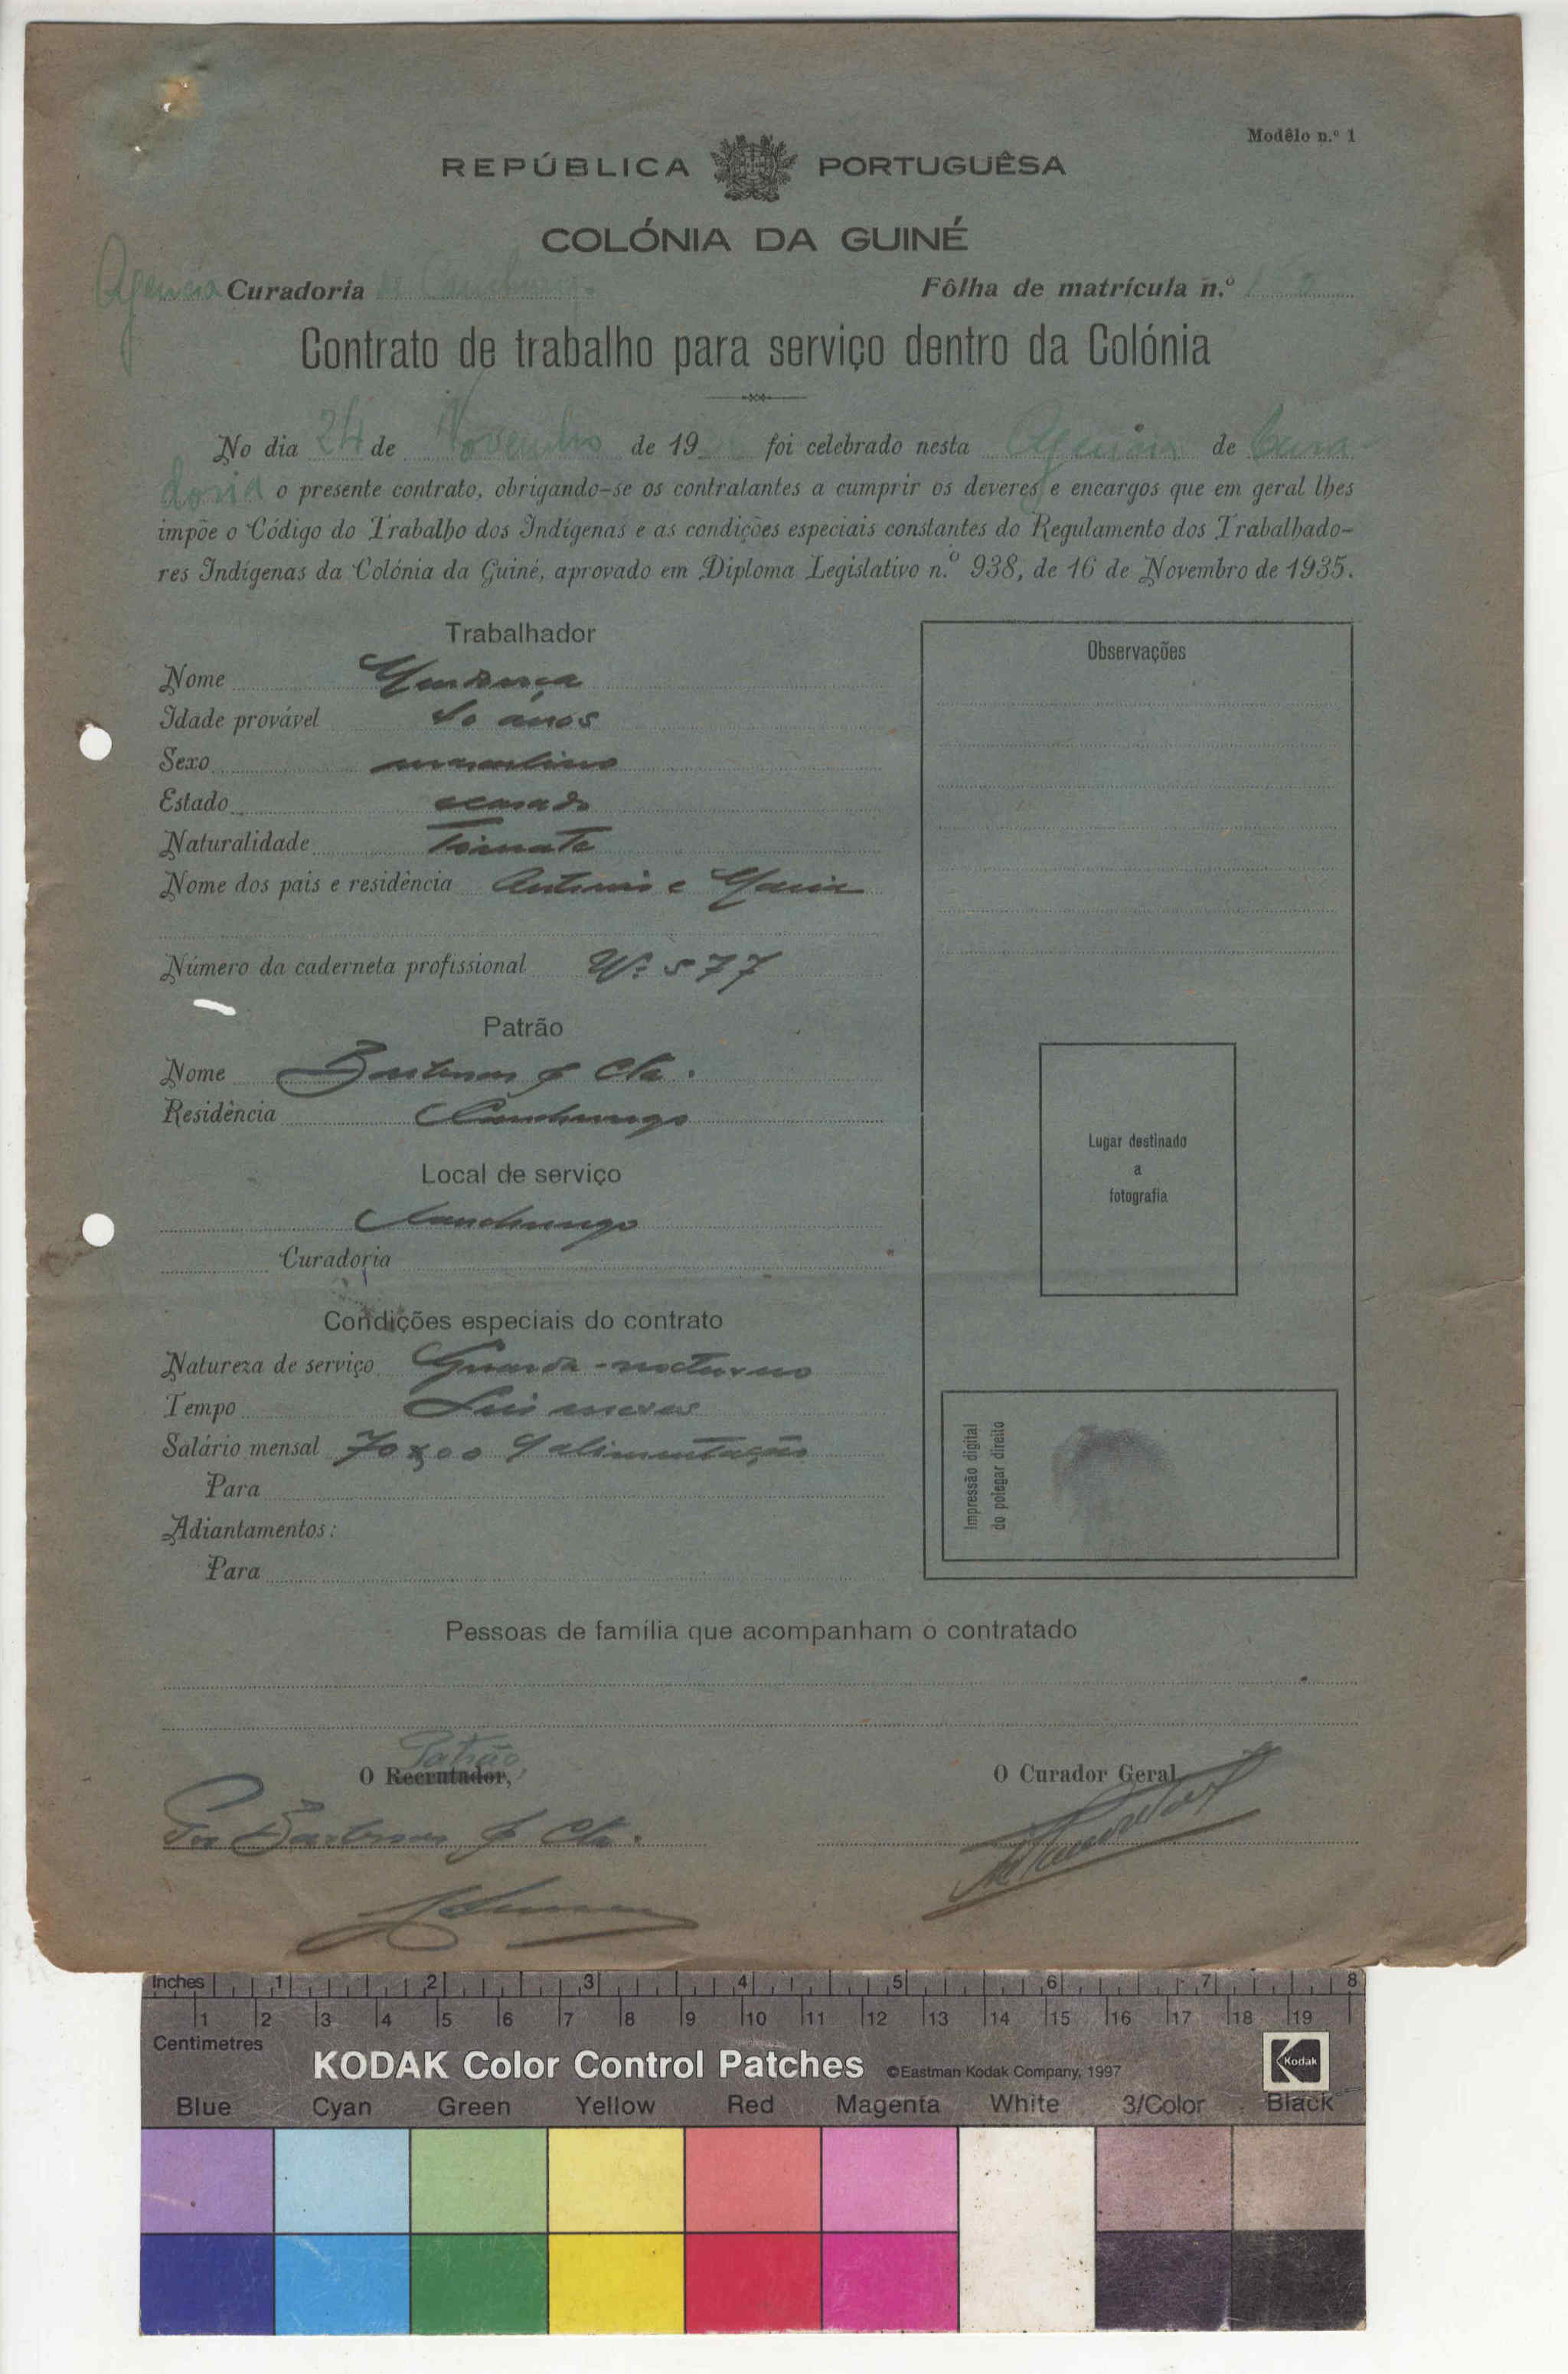 Modêlo n.º 1
REPÚBLICA PORTUGUÊSA
COLÓNIA DA GUINÉ
Agencia Curadoria de Canchungo. Fôlha de matrícula n.º
Contrato de trabalho para serviço dentro da Colónia
No dia 24 de Novembro de 19 foi celebrado nesta Agencia de Cura
doria o presente contrato, obrigando-se os contratantes a cumprir os deveres e encargos que em geral lhes
impõe o Código do Trabalho dos Indígenas e as condições especiais constantes do Regulamento dos Trabalhado-
res Indígenas da Colónia da Guiné, aprovado em Diploma Legislativo n.º 938, de 16 de Novembro de 1935.
Trabalhador
Nome
Idade provável anos
Sexo masculino
Estado casado
Naturalidade
Nome dos pais e residência Antonio e Maria
Número da caderneta profissional Nº 577
Patrão
Nome Barbosas & Cta.
Residência Canchungo
Local de serviço
Canchungo
Curadoria
Condições especiais do contrato
Natureza de serviço Guarda-nocturno
Tempo Seis meses
Salário mensal 70$00 alimentação
Para
Adiantamentos:
Para
Observações
Lugar destinado
a
fotografia
Impressão digital
do polegar direito
Pessoas de família que acompanham o contratado
Patrão,
O Recrutador, O Curador Geral
Por Barbosas & Cta.
Inches 1 2 3 4 5 6 7 8
1 2 3 4 5 6 7 8 9 10 11 12 13 14 15 16 17 18 19
Centimetres
KODAK Color Control Patches ©Eastman Kodak Company, 1997 Kodak
Blue Cyan Green Yellow Red Magenta White 3/Color Black